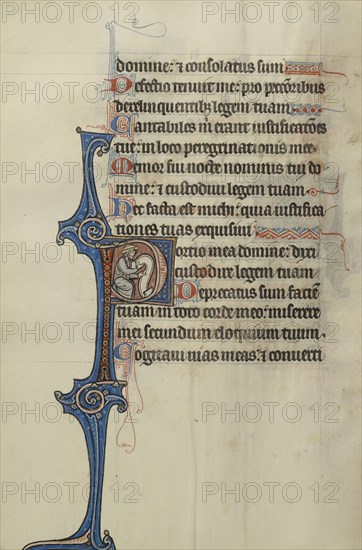 domine: ⁊ consolatus sum
Defectio tenuit me: pro peccatoribus
derelinquentibꝫ legem tuam
Cantabiles m̄ erant iustificatōes
tue: in loco peregrinationis mee
Memor fui nocte nominis tui do
mine: ⁊ custodiui legem tuam
Hec facta est michi: quia iustifica
tiones tuas exquisiui
Portio mea domine: dixi
custodire legem tuam
Deprecatus sum faciē
tuam in toto corde meo: miserere
mei secundum eloquium tuum
Cogitaui uias meas: ⁊ conuerti
PHOTO12